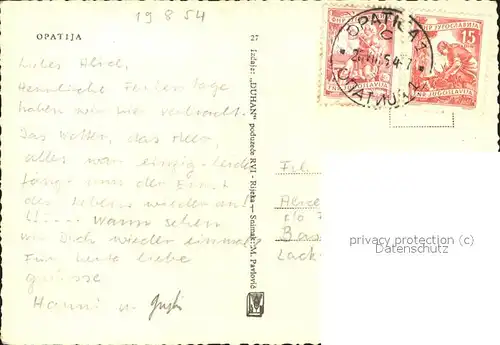 19 8 54
OPATIJA
Liebes Alice,
Herrliche Ferientage
haben wir hier verbracht.
Das Wetter, das Meer,
alles war einzig - leider
fängt nun der Ernst
des Lebens wieder an!
Wann sehen
wir Dich wieder einmal?
Für heute liebe
Grüsse
Hanni u.
27
Izdaje: „DUHAN" poduzeće RVI - Rijeka — Snimak: M. Pavlović
OPATIJA 1
OPATIJA
54-7
ФНР ЈУГОСЛАВИЈА
FNR JUGOSLAVIJA
FNR JUGOSLAVIJA
15
ФНР ЈУГОСЛАВИЈА
Frl.
Alice
c/o
Bas
Lack
privacy protection
Datenschutz